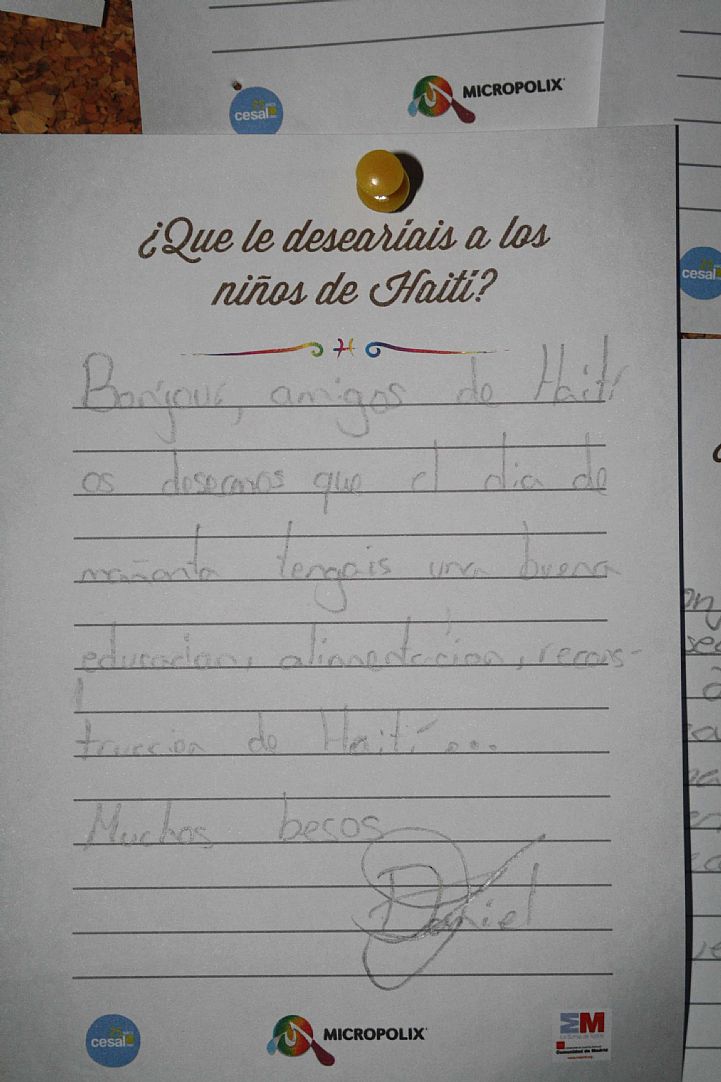 cesal
MICROPOLIX
cesal
¿Que le desearíais a los
niños de Haití?
Bonjour, amigos de Haití
os deseamos que el dia de
mañana tengais una buena
educacion, alimentacion, recons-
trucción de Haití...
Muchos besos
Daniel
cesal
MICROPOLIX
EM
La Suma de Todos
Comunidad de Madrid